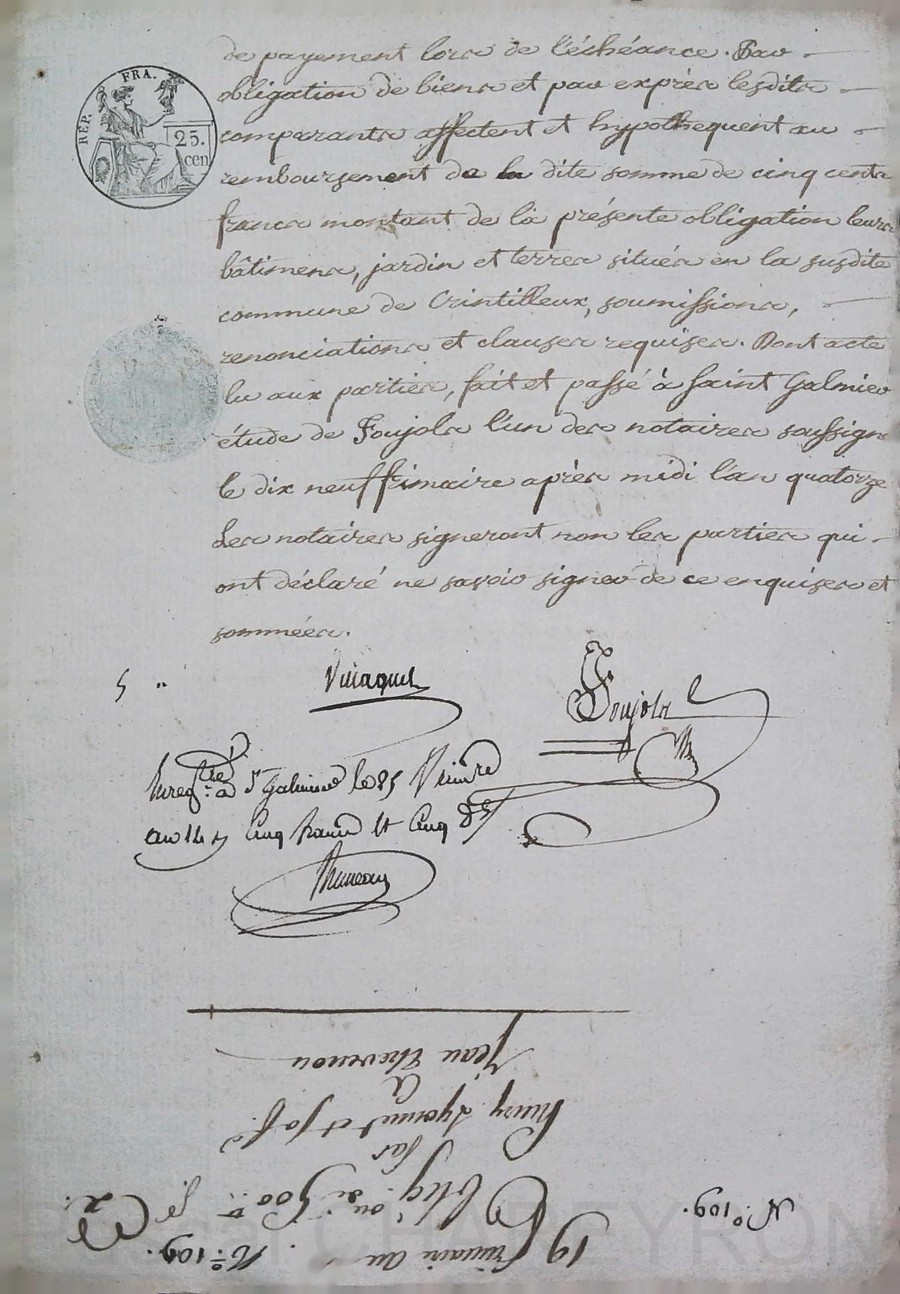 de payement lors de l'échéance. Par
obligation de biens et par exprès lesdits
comparants affectent et hypothequent au
remboursement de la dite somme de cinq cents
francs montant de la présente obligation leurs
bâtimens, jardin et terres situés en la susdite
commune de Crintilleux, soumissions,
renonciations et clauses requises. Dont acte
lu aux parties, fait et passé à Saint Galmier
étude de Foujols l'un des notaires soussign
le dix neuf frimaire après midi l'an quatorze
Les notaires signeront non les parties qui
ont déclaré ne savoir signer de ce enquises et
sommées.
REP. FRA.
25.
cen
5
Foujols
Enregtré à St Galmier le 25 frimre
an 14 cinq francs et cinq
19 frimaire an . N.° 109.
N.° 109.
Oblig.on de 500
Par
et
Jean Thevenon
CHAPEYRON